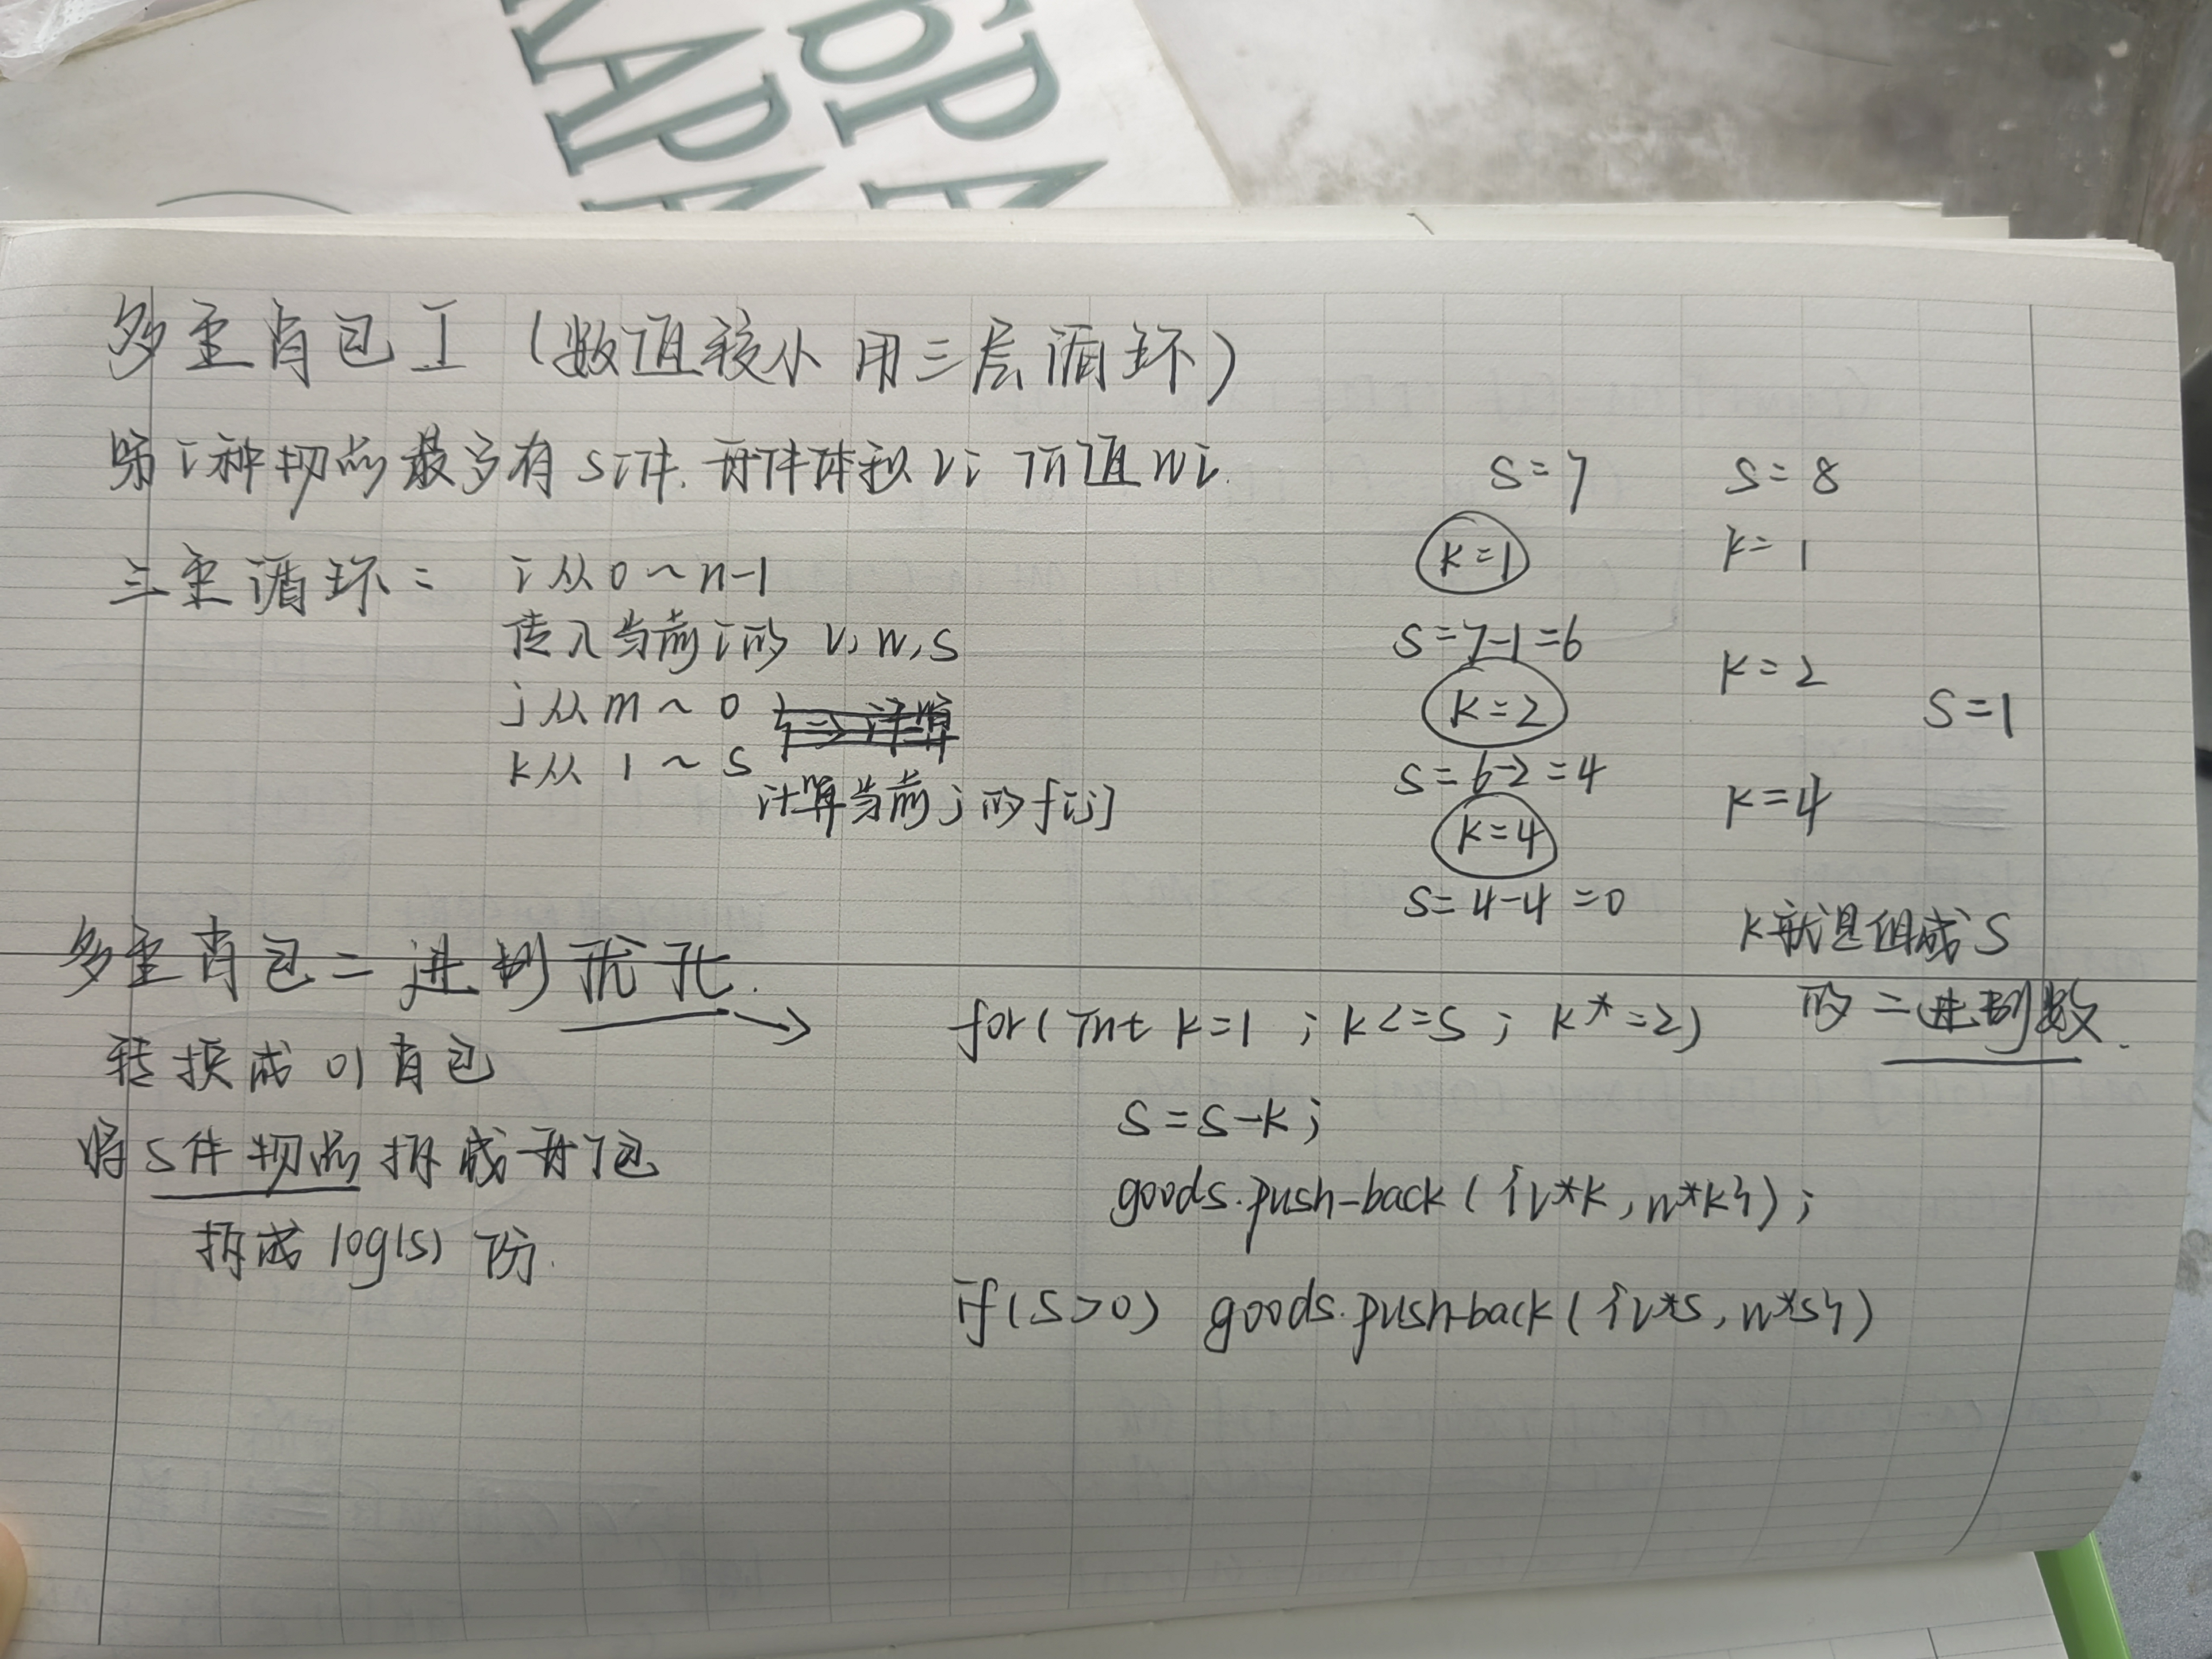 多重背包 I (数值较小 用三层循环)
第i种物品最多有 si件. 每件体积 vi 价值wi.
三重循环: i从0~n-1
传入当前i的 v, w, s
j从m~0
k从 1~s
计算当前j的f[j]
s=7
k=1
s=7-1=6
k=2
s=6-2=4
k=4
s=4-4=0
s=8
k=1
k=2
k=4
s=1
k就是组成s
的二进制数.
多重背包二进制优化.
转换成01背包
将s件物品拆成每1包
拆成log(s)份.
for(int k=1 ; k<=s ; k*=2)
s=s-k;
goods.push-back({v*k, w*k});
if(s>0) goods.pushback({v*s, w*s})